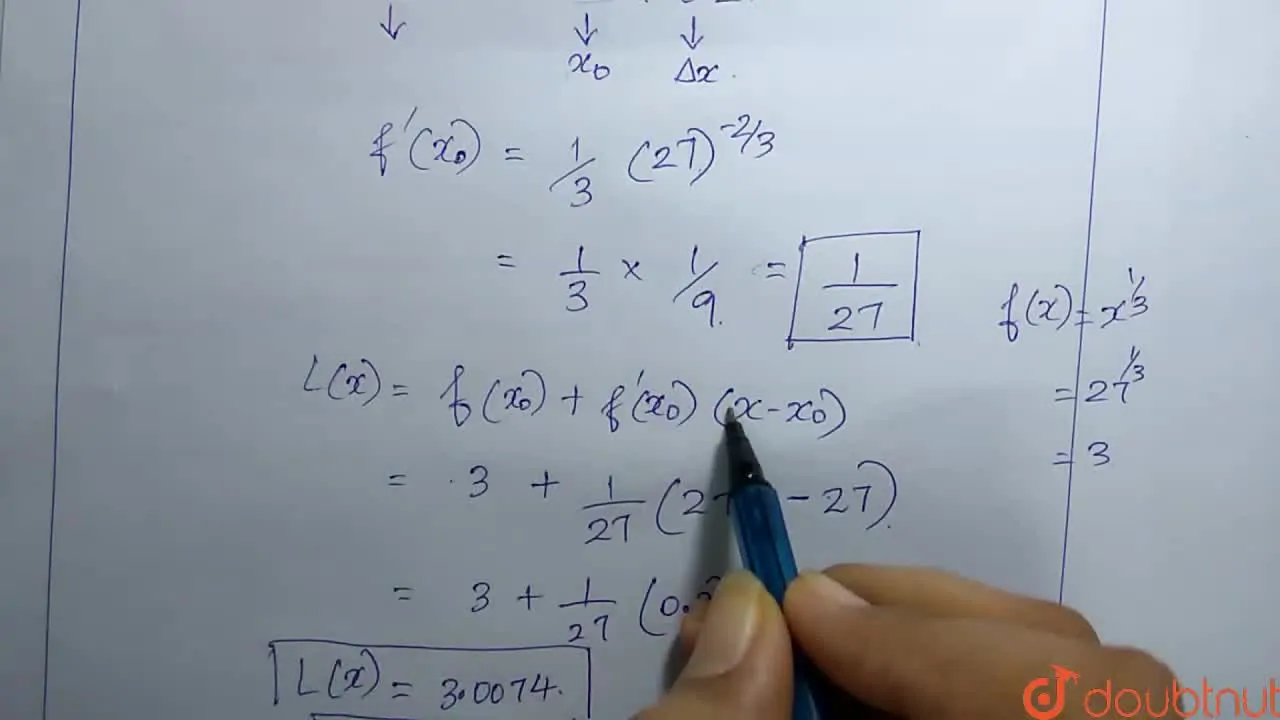 ↓ ↓ ↓
x₀ Δx.
f'(x₀) = 1/3 (27)^-2/3
= 1/3 × 1/9. = 1/27
f(x) = x^1/3
L(x) = f(x₀) + f'(x₀) (x - x₀)
= 27^1/3
= 3
= 3 + 1/27 (27 - 27).
= 3 + 1/27 (0.
L(x) = 3.0074.
doubtnut